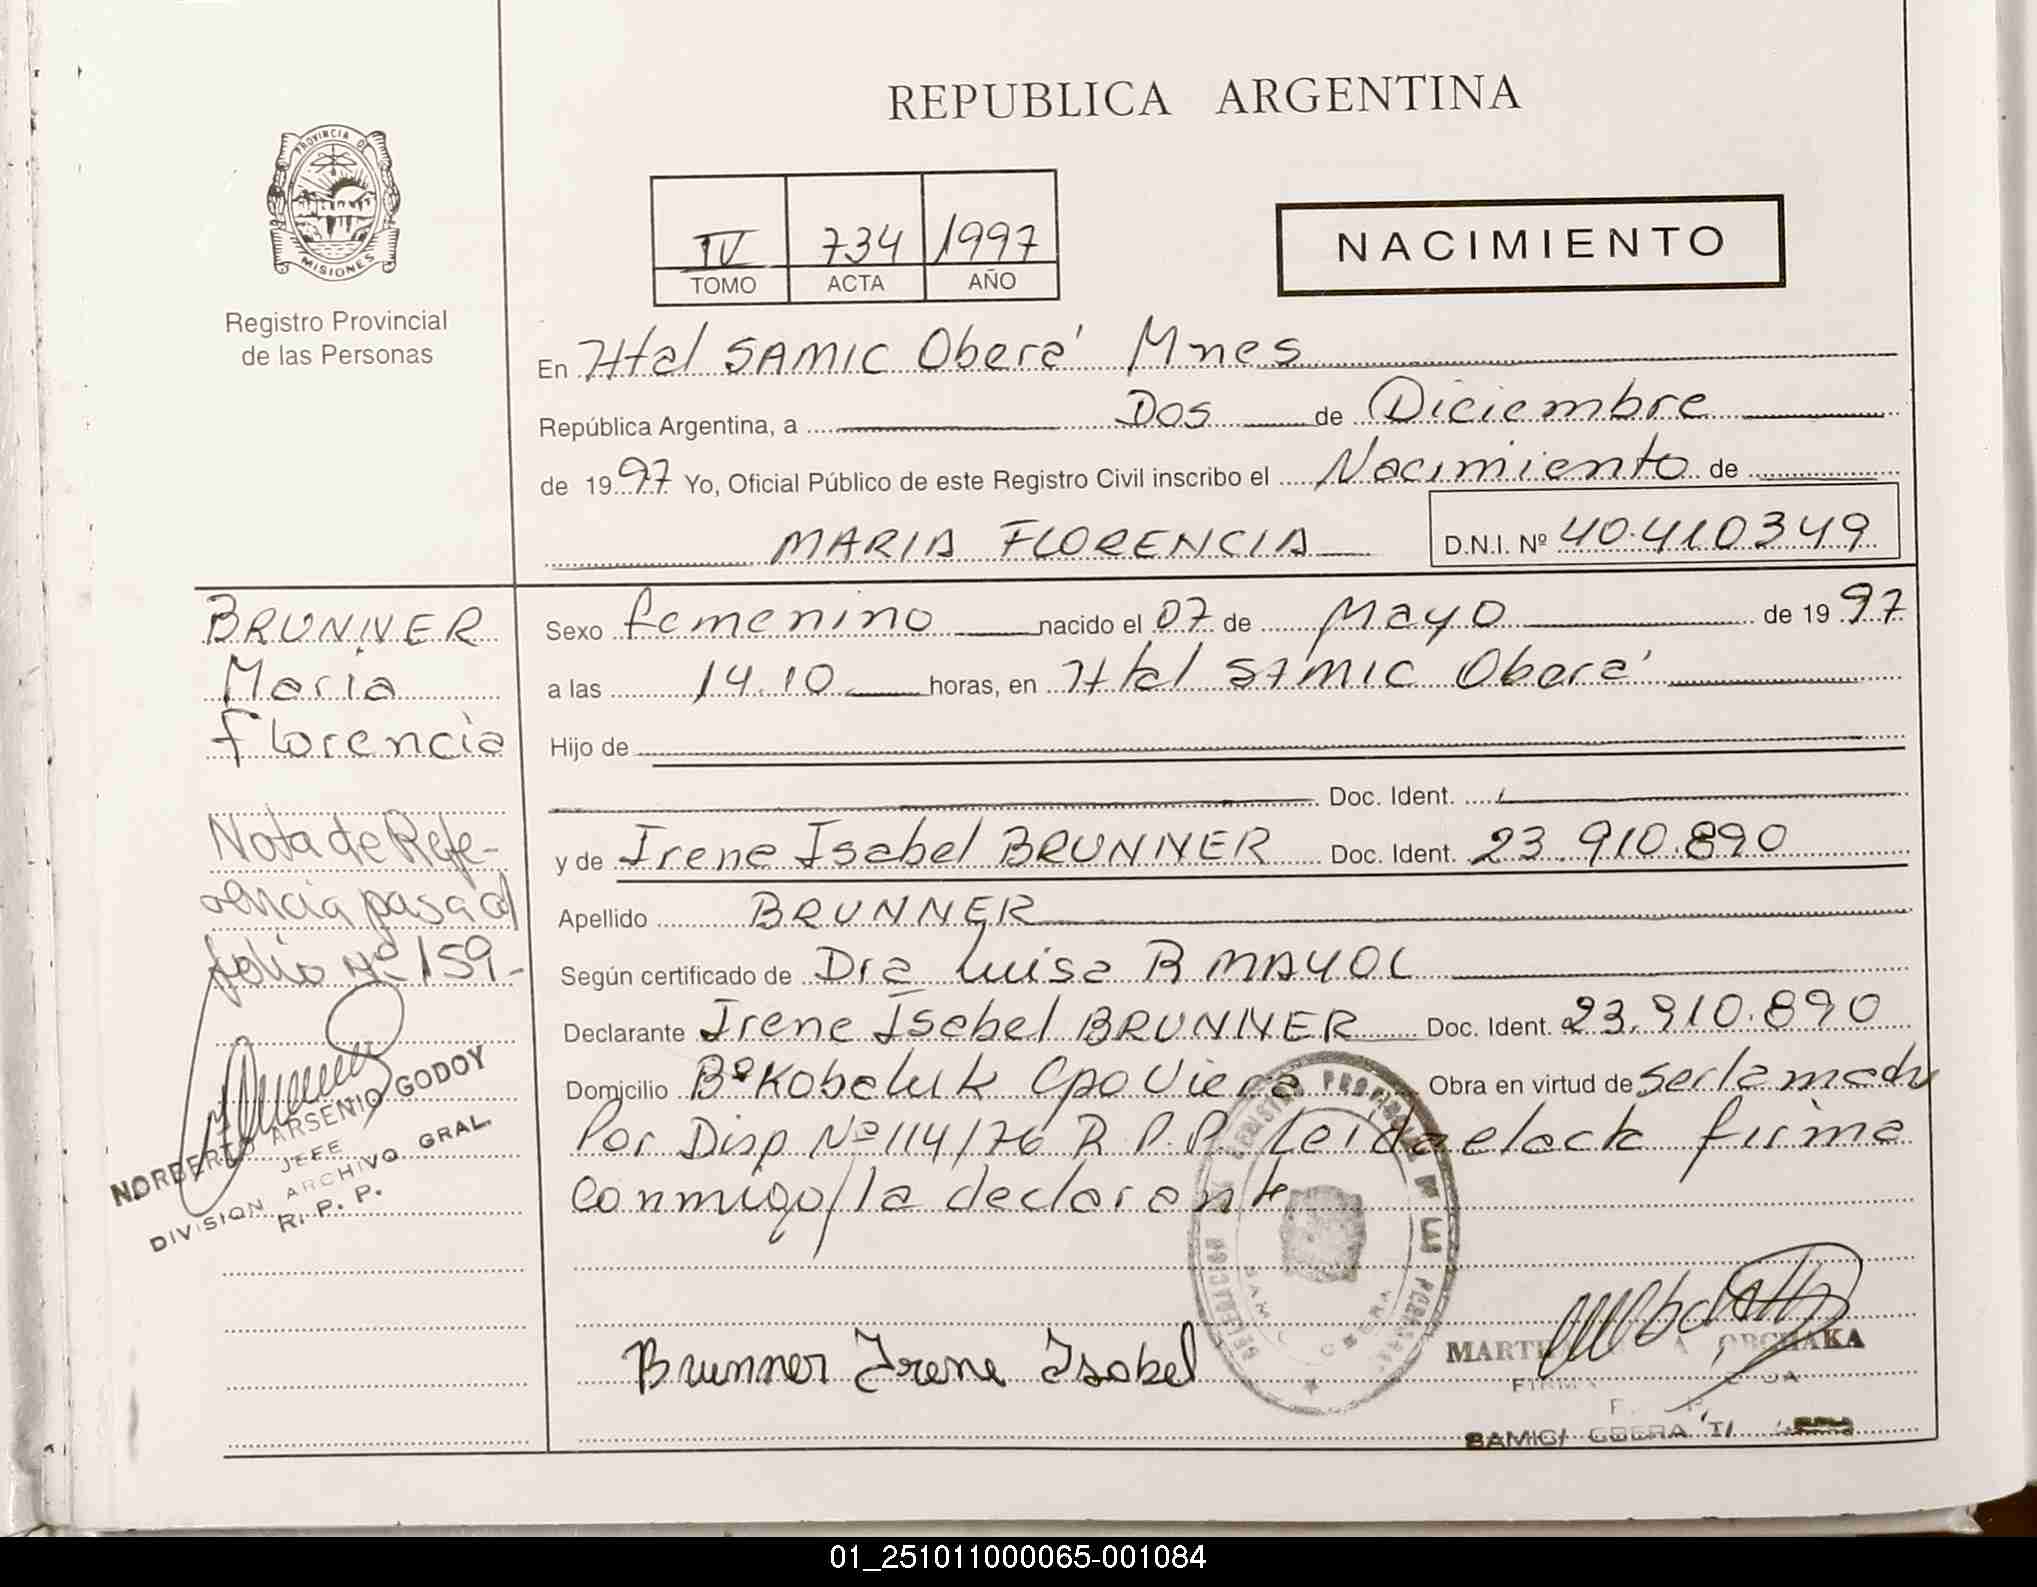 REPUBLICA ARGENTINA
PROVINCIA DE
MISIONES
Registro Provincial
de las Personas
IV 734 1997
TOMO ACTA AÑO
NACIMIENTO
En Htal SAMIC Oberá Mnes
República Argentina, a Dos de Diciembre
de 1997 Yo, Oficial Público de este Registro Civil inscribo el Nacimiento de
MARIA FLORENCIA D.N.I. Nº 40.410349
BRUNNER
Maria
Florencia
Nota de Refe-
rencia pasa al
folio Nº 159-
NORBERTO ARSENIO GODOY
JEFE
DIVISION ARCHIVO GRAL.
R. P. P.
Sexo femenino nacido el 07 de Mayo de 1997
a las 14.10 horas, en Htal SAMIC Oberá
Hijo de
Doc. Ident.
y de Irene Isabel BRUNNER Doc. Ident. 23.910.890
Apellido BRUNNER
Según certificado de Dra Luisa R MAYOL
Declarante Irene Isabel BRUNNER Doc. Ident. 23.910.890
Domicilio Bº Kobaluk Cpo Viera Obra en virtud de ser la madre
Por Disp Nº 114/76 R.P.P. Leida el acta firma
conmigo la declarante
Brunner Irene Isabel
SAMIC OBERA
01_251011000065-001084